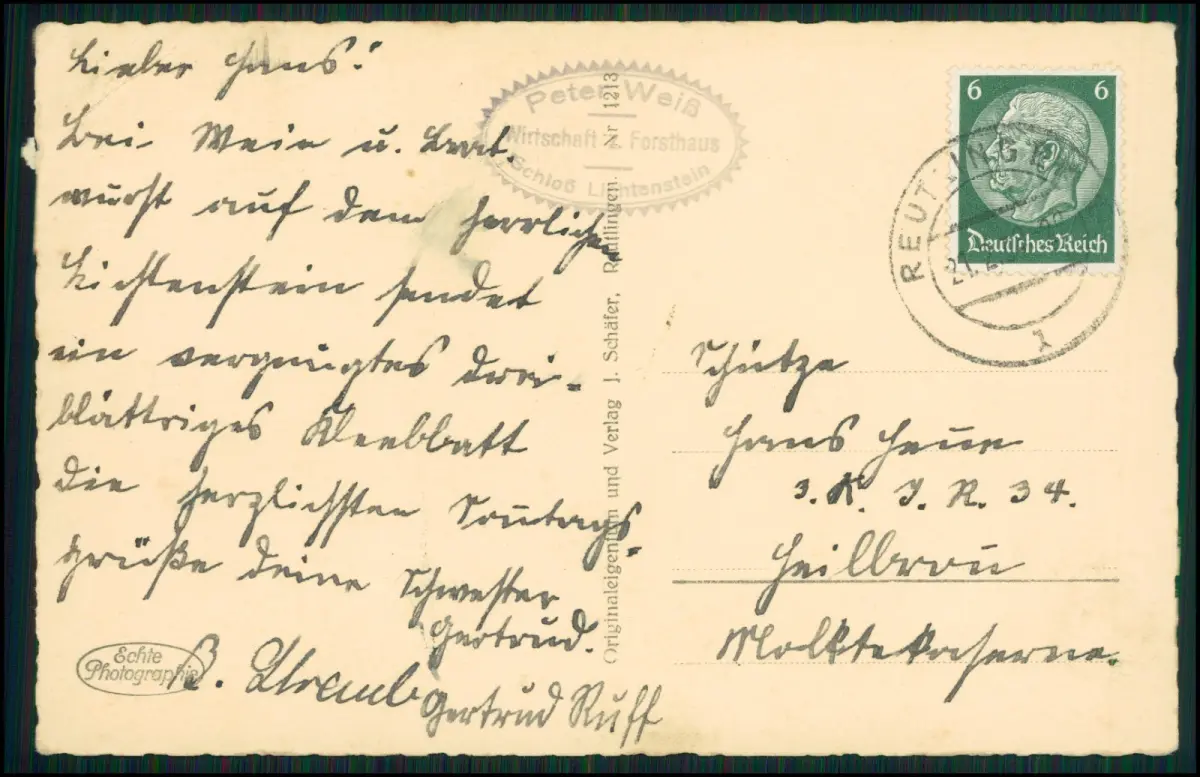 Lieber Hans!
Bei Wein u. Brat-
wurst auf dem herrlichen
Lichtenstein sendet
ein vergnügtes drei-
blättriges Kleeblatt
die herzlichsten Sonntags-
grüße deine Schwester
Gertrud.
Gertrud Ruff
Echte
Photographie
Peter Weiß
Wirtschaft z. Forsthaus
Schloß Lichtenstein
Originaleigentum und Verlag J. Schäfer, Reutlingen. Nr 1213
6 6
Deutsches Reich
REUTLINGEN
1
Schütze
Hans
3. K. I. R. 34.
Heilbronn
Moltkekaserne.